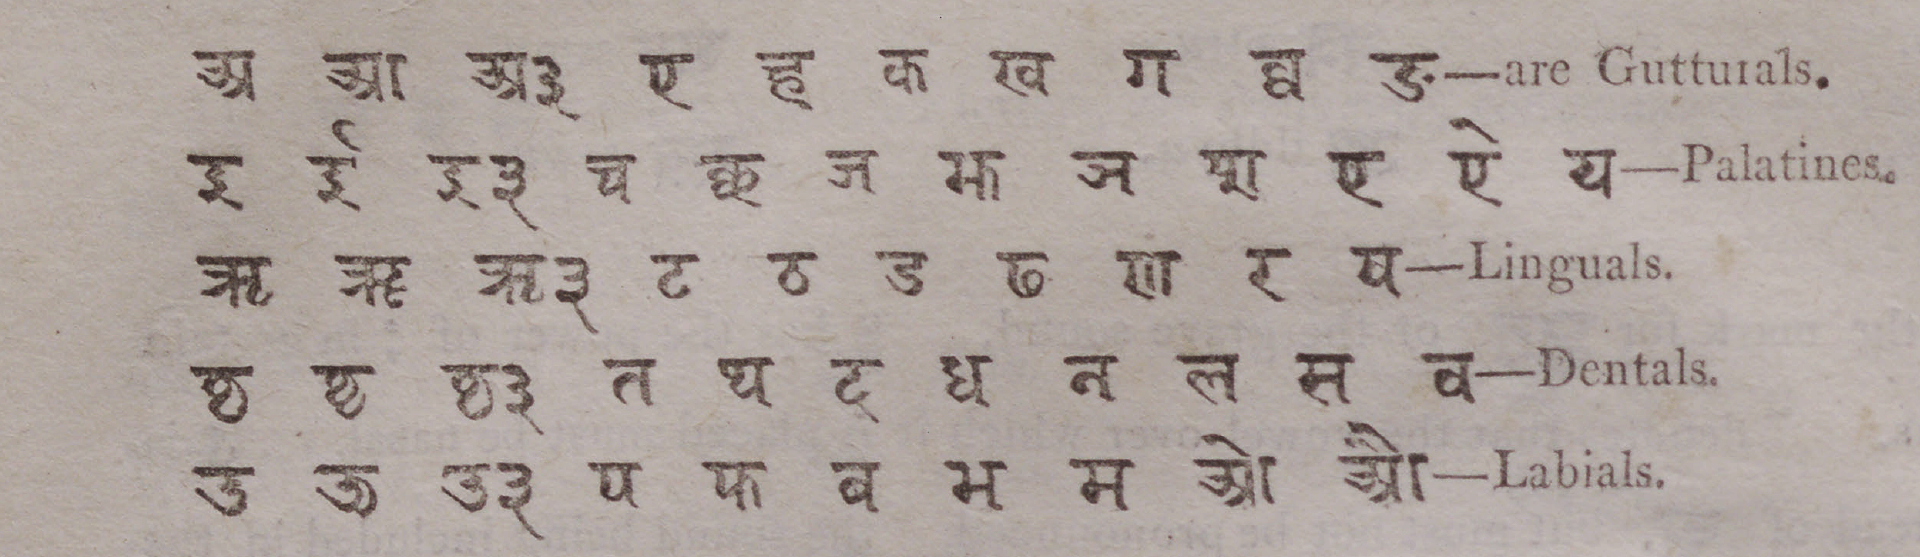 अ आ अ३ ए ह क ख ग घ ङ—are Gutturals.
इ ई इ३ च छ ज झ ञ श ए ऐ य—Palatines.
ऋ ॠ ऋ३ ट ठ ड ढ ण र ष—Linguals.
ऌ ॡ ऌ३ त थ द ध न ल स व—Dentals.
उ ऊ उ३ प फ ब भ म ओ औ—Labials.